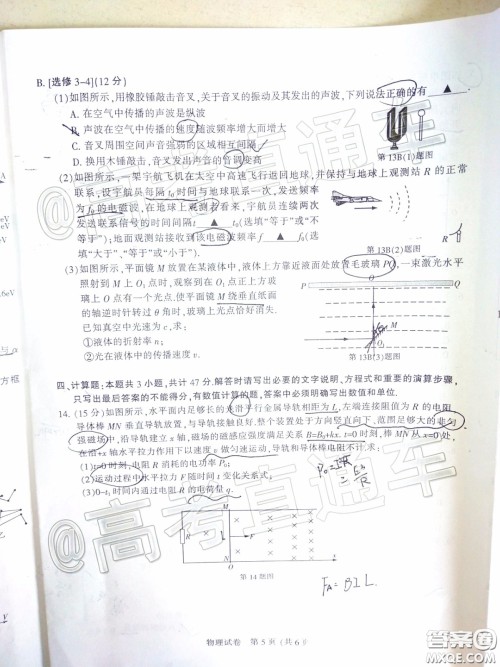 B. [选修 3-4](12 分)
(1)如图所示,用橡胶锤敲击音叉,关于音叉的振动及其发出的声波,下列说法正确的有 ▲ .
A. 在空气中传播的声波是纵波
B. 声波在空气中传播的速度随波频率增大而增大
C. 音叉周围空间声音强弱的区域相互间隔
D. 换用木锤敲击,音叉发出声音的音调变高
第 13B(1)题图
(2)如图所示,一架宇航飞机在太空中高速飞行返回地球,并保持与地球上观测站 R 的正常
联系,设宇航员每隔 t₀ 时间与地球联系一次,发送频率
为 f₀ 的电磁波,在地球上观测者看来,宇航员连续两次
发送联系信号的时间间隔 t ▲ t₀(选填“等于”或“不
等于”);地面观测站接收到该电磁波频率 f ▲ f₀(选
填“大于”、“等于”或“小于”).
第 13B(2)题图
R
(3)如图所示,平面镜 M 放置在某液体中,液体上方靠近液面处放置毛玻璃 PQ,一束激光水平
照射到 M 上 O₁ 点时,观察到在 O₁ 点正上方玻
璃上 O 点有一个光点,使平面镜 M 绕垂直纸面
的轴逆时针转过 θ 角时,玻璃上光点恰好消失.
已知真空中光速为 c,求:
①液体的折射率 n;
②光在液体中的传播速度 v.
P
O
Q
M
O₁
第 13B(3)题图
四、计算题:本题共 3 小题,共计 47 分.解答时请写出必要的文字说明、方程式和重要的演算步骤,
只写出最后答案的不能得分,有数值计算的题,答案中必须明确写出数值和单位.
14. (15 分)如图所示,水平面内足够长的光滑平行金属导轨相距为 L,左端连接阻值为 R 的电阻,
导体棒 MN 垂直导轨放置,与导轨接触良好.整个装置处于方向竖直向下、范围足够大的非匀
强磁场中,沿导轨建立 x 轴,磁场的磁感应强度满足关系 B=B₀+kx. t=0 时刻,棒 MN 从 x=0 处,
在沿+x 轴水平拉力作用下以速度 v 做匀速运动,导轨和导体棒电阻不计,求:
(1)t=0 时刻,电阻 R 消耗的电功率 P₀;
(2)运动过程中水平拉力 F 随时间 t 变化关系式;
(3)0~t₁ 时间内通过电阻 R 的电荷量 q.
M
R
v
F
N
O
x
第 14 题图
F_A = BIL
物理试卷 第 5 页 (共 6
@高考直通车
@高考直通车
答案圈
MXQE.COM